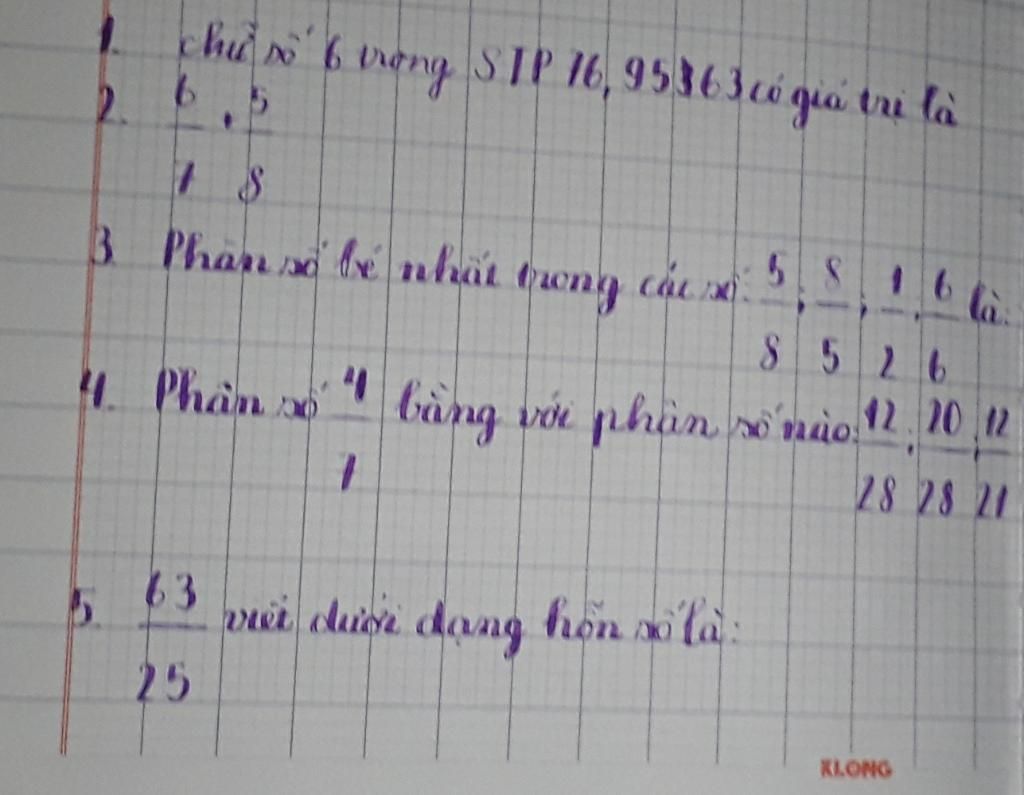 1. chữ số 6 trong STP 16,95363 có giá trị là
2. 6/1 . 5/8
3. Phân số bé nhất trong các số: 5/8 ; 8/5 ; 1/2 ; 6/6 là:
4. Phân số 4/1 bằng với phân số nào: 12/28 ; 20/28 ; 12/21
5. 63/25 viết dưới dạng hỗn số là:
KLONG